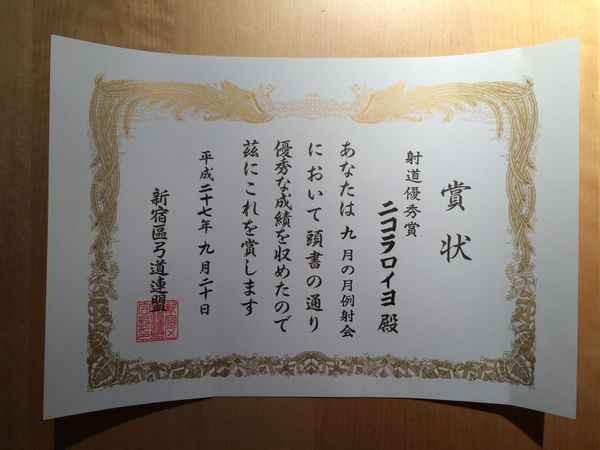 賞状
射道優秀賞
ニコラロイヨ 殿
あなたは九月の月例射会
において頭書の通り
優秀な成績を収めたので
茲にこれを賞します
平成二十七年九月二十日
新宿區弓道連盟